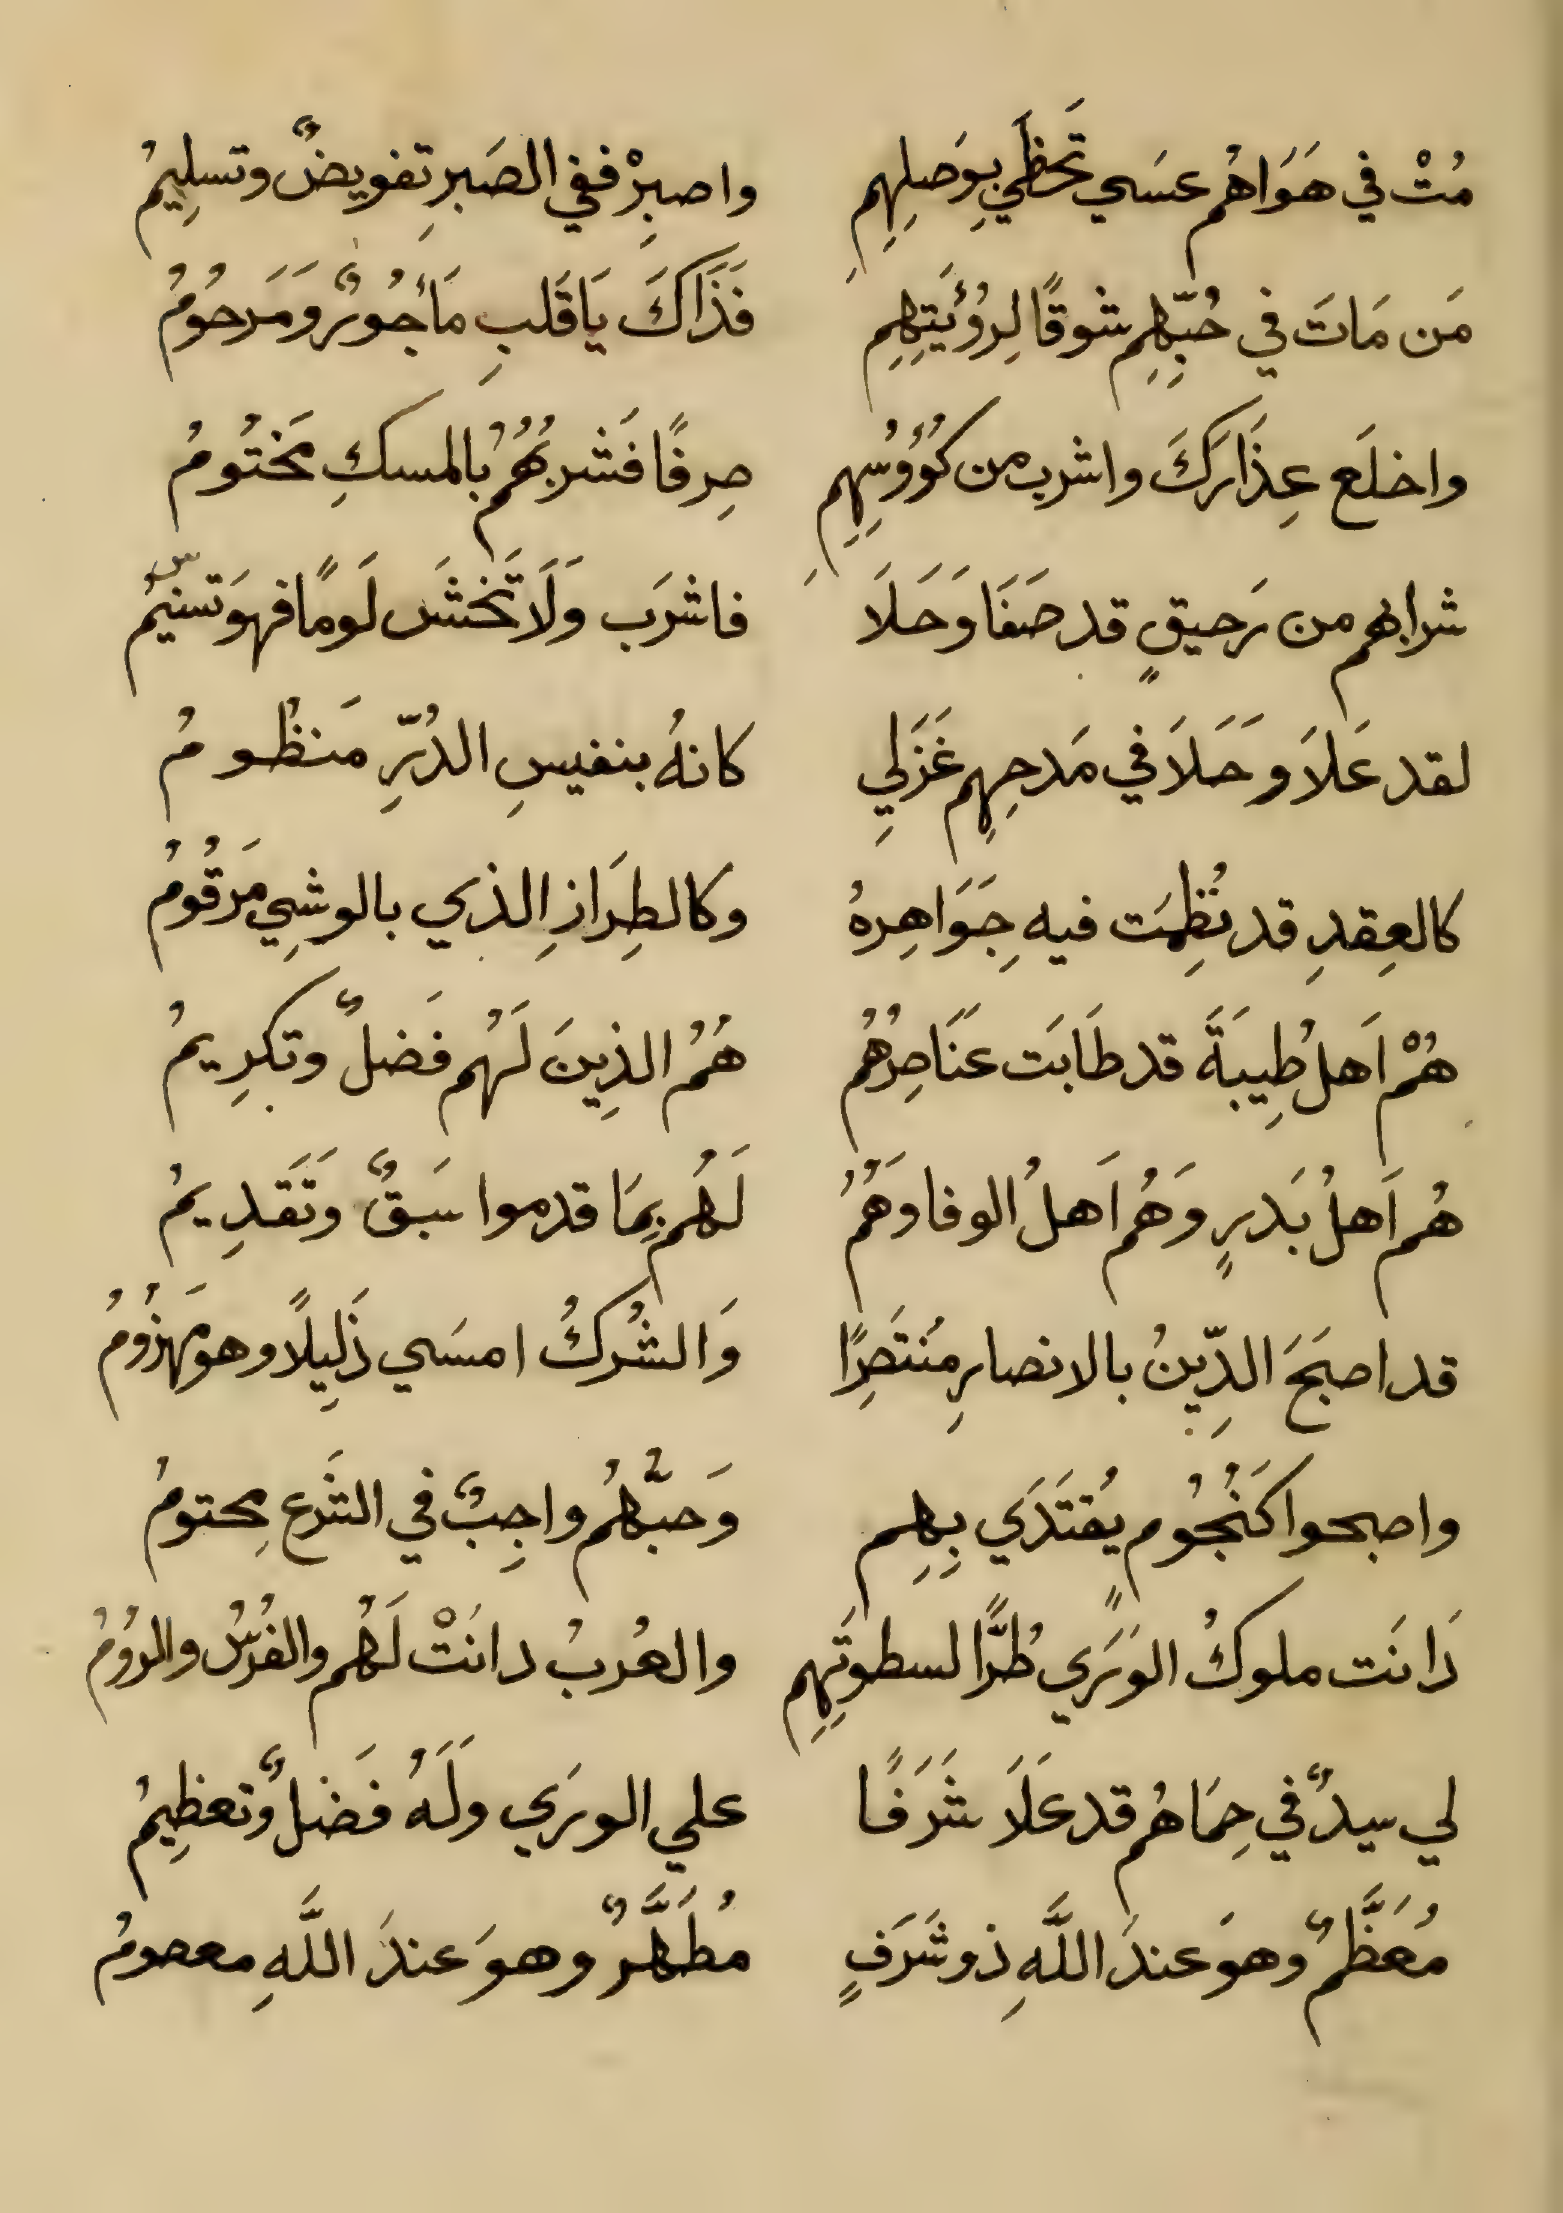 مُتْ في هَوَاهُم عسَي تَحظَي بِوَصلِهِمِ واصبِرْ ففي الصَبرِ تفويضٌ وتسلِيمُ
مَن مَاتَ في حُبِّهِم شوقًا لِرُؤيَتِهِمِ فَذَاكَ يَا قَلبِ مَأجُورٌ وَمَرحُومُ
واخلَع عِذَارَكَ واشرب من كُؤُوسِهِمِ صِرفًا فَشربُهُمُ بالمسكِ مَختُومُ
شرابهم من رَحيقٍ قد صَفَا وَحَلَا فاشرَب وَلَا تَخشَ لَومًا فهوَ تسنيمُ
لقد عَلَا وَحَلَا في مَدحِهِم غَزَلِي كانهُ بنفيسِ الدُرِّ مَنظُومُ
كالعِقدِ قد نُظِمَت فيه جَوَاهِرهُ وكالطِرَازِ الذي بالوشِي مَرقُومُ
هُمْ اَهلُ طِيبَةَ قد طَابَت عنَاصِرُهُم هُمُ الذِينَ لَهُم فَضلٌ وتكرِيمُ
هُم اَهلُ بَدرٍ وَهُم اَهلُ الوفا وَهُمُ لَهُم بِمَا قدموا سَبقٌ وَتَقدِيمُ
قد اصبَحَ الدِّينُ بالانصارِ مُنتَصِرًا وَالشركُ امسَي ذَلِيلًا وهو مَهزُومُ
واصبحوا كَنُجُومٍ يُقتَدَي بِهِمِ وَحبُّهُم واجِبٌ في الشَرعِ محتومُ
دَانَت ملوكُ الوَرَي طُرًّا لسطوتِهِم والعُربُ دانَتْ لَهُم والفُرسُ والرُومُ
لي سيدٌ في حِمَاهُم قد عَلَا شَرَفًا علي الورَي ولَهُ فَضلٌ وتعظِيمُ
مُعَظَّمٌ وهوَ عندَ اللَّهِ ذو شَرَفٍ مُطَهَّرٌ وهوَ عندَ اللَّهِ معصومُ